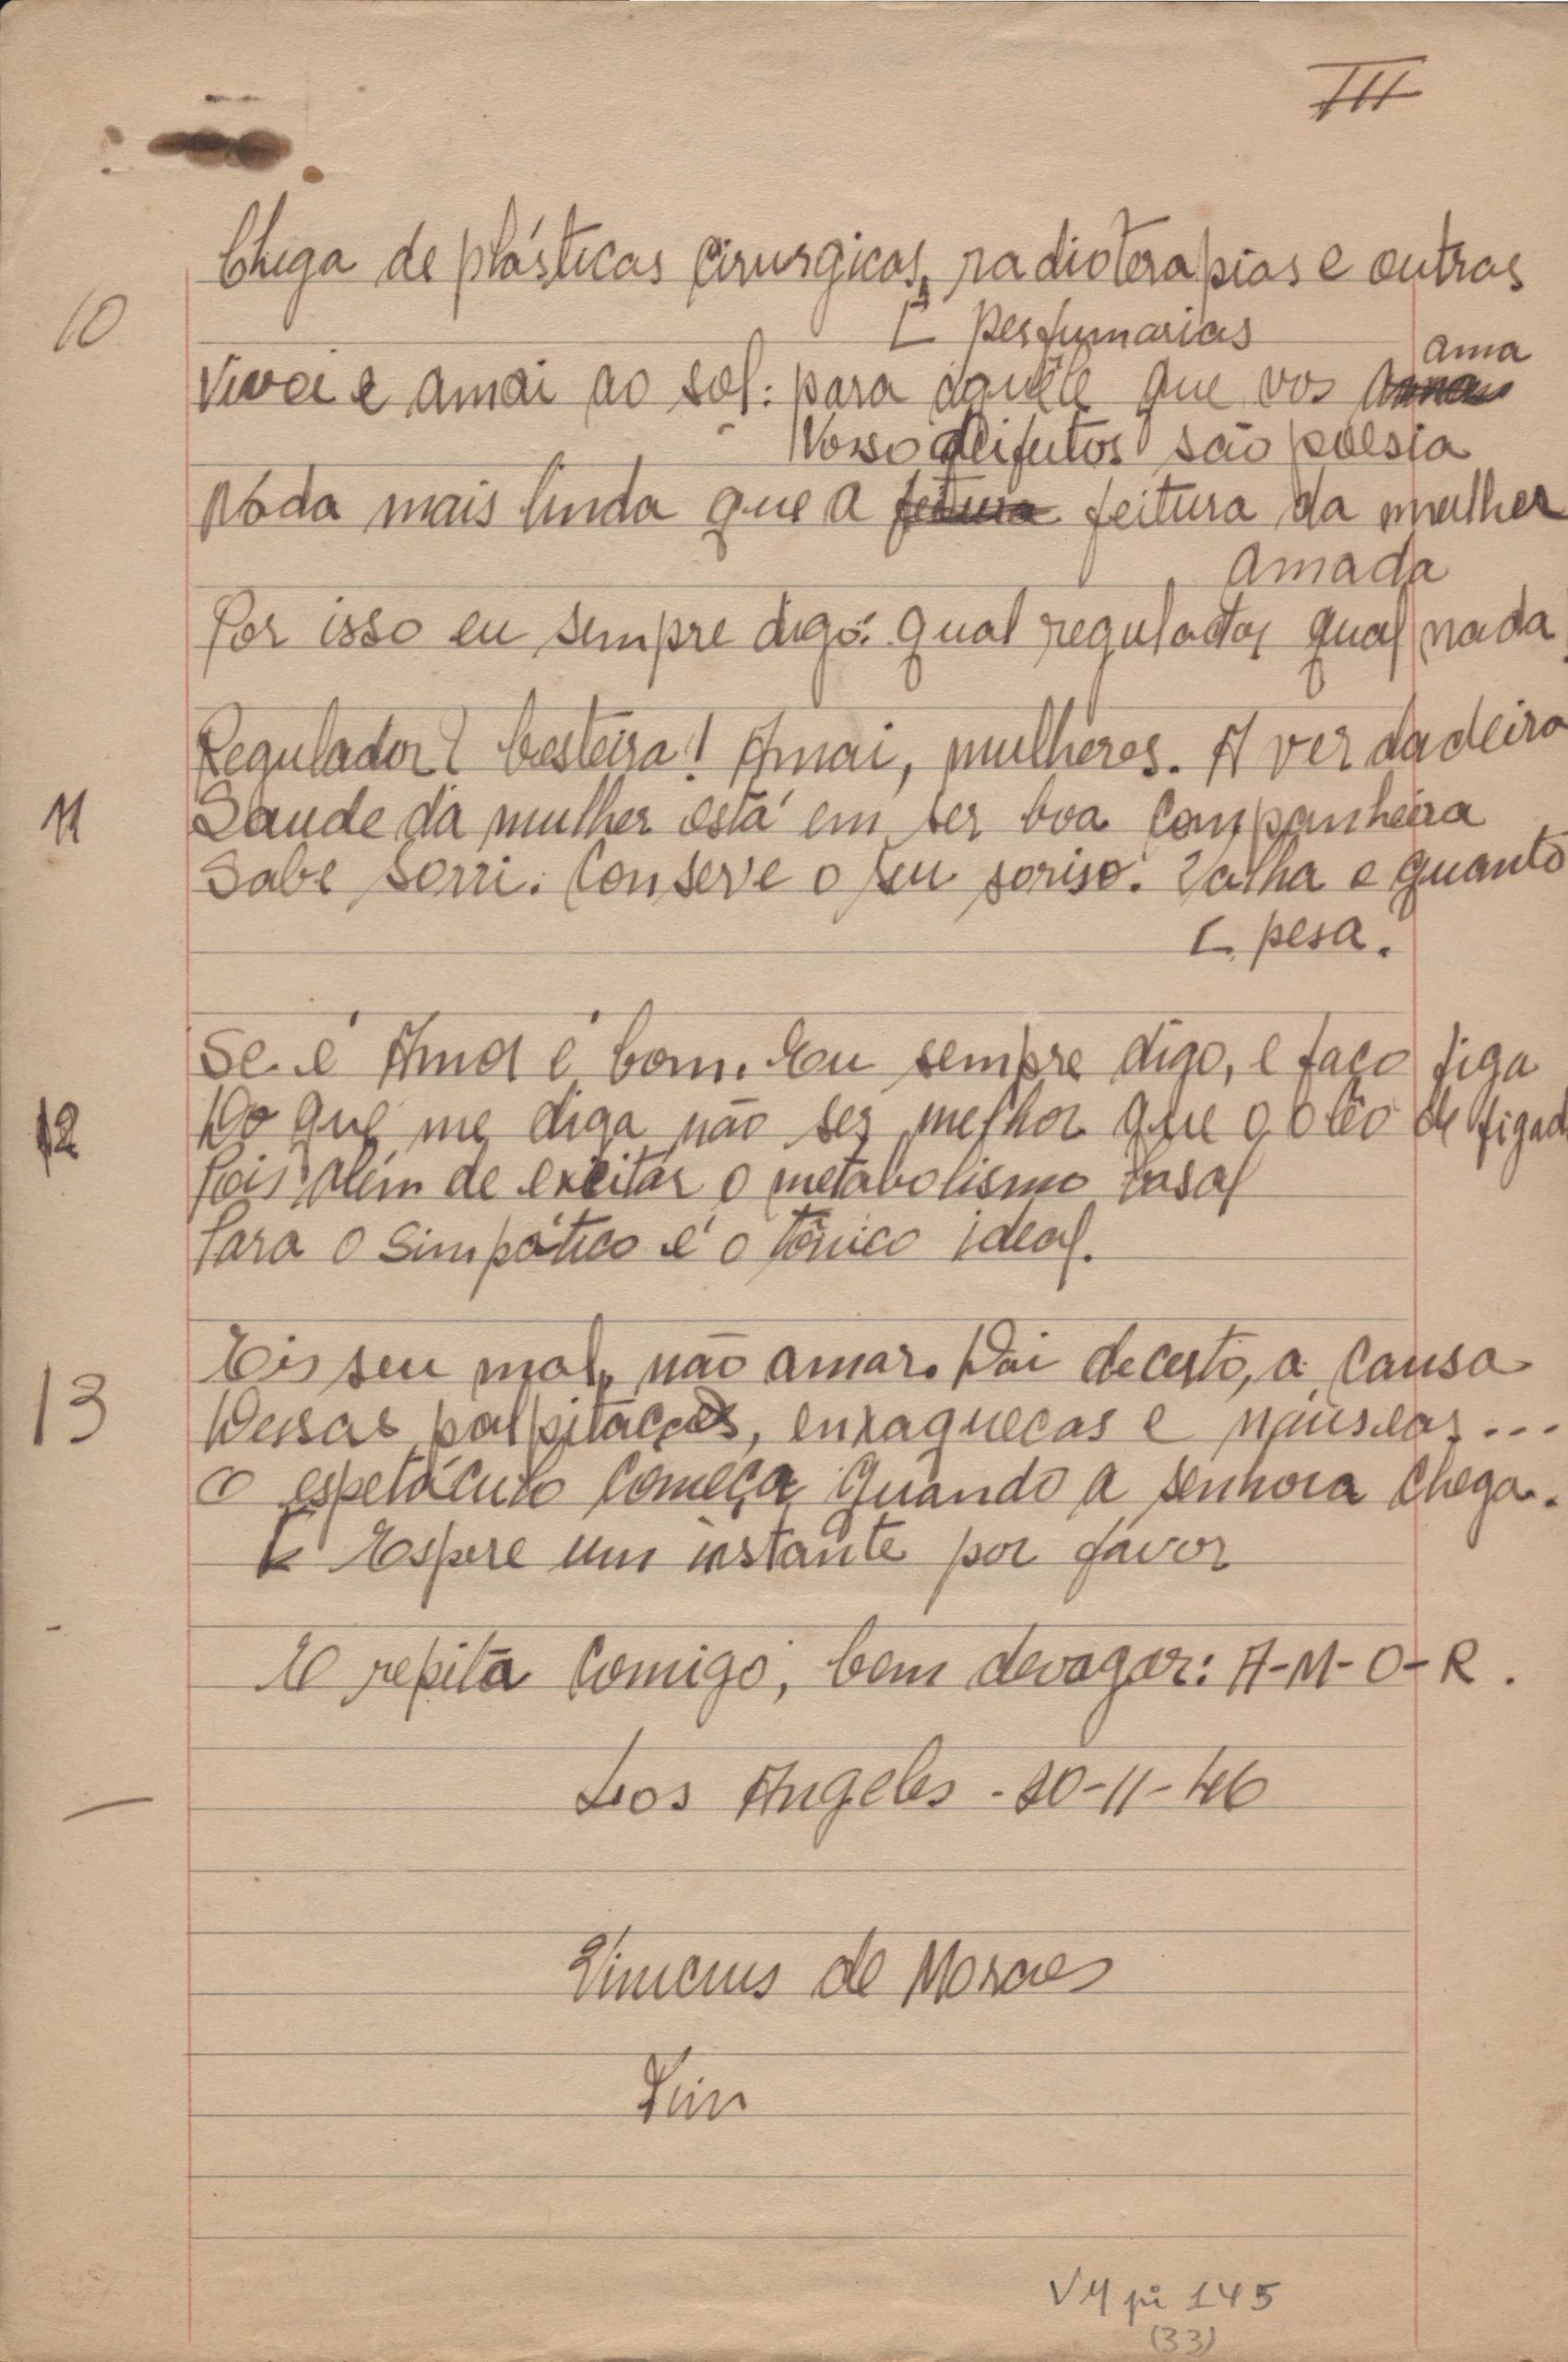 III
Chega de plásticas cirurgicas, radioterapias e outras
10
[ perfumarias
ama
Vivei e amai ao sol: para aquêle que vos
Vosso deifutos são poesia
Nada mais linda que a feitura feitura da mulher
amada
Por isso eu sempre digo: qual regulador qual nada
Regulador? besteira! Amai, mulheres. A verdadeira
11
Saude da mulher está em ser boa companheira
Sabe sorri. Conserve o seu soriso. Valha e quanto
[ pesa.
Se é Amor é bom. Eu sempre digo, e faço figa
12
Do que me diga não ser melhor que o oleo de figad
Pois além de exeitar o metabolismo basal
Para o simpático é o tônico ideal.
Eis seu mal, não amar. Daí decerto, a causa
13
Dessas palpitações, enxaquecas e náuseas...
O espetáculo começa quando a senhora chega.
E Espere um instante por favor
E repita comigo, bem devagar: A-M-O-R.
Los Angeles - 20-11-46
Vinicius de Moraes
Fim
VM pi 145
(33)